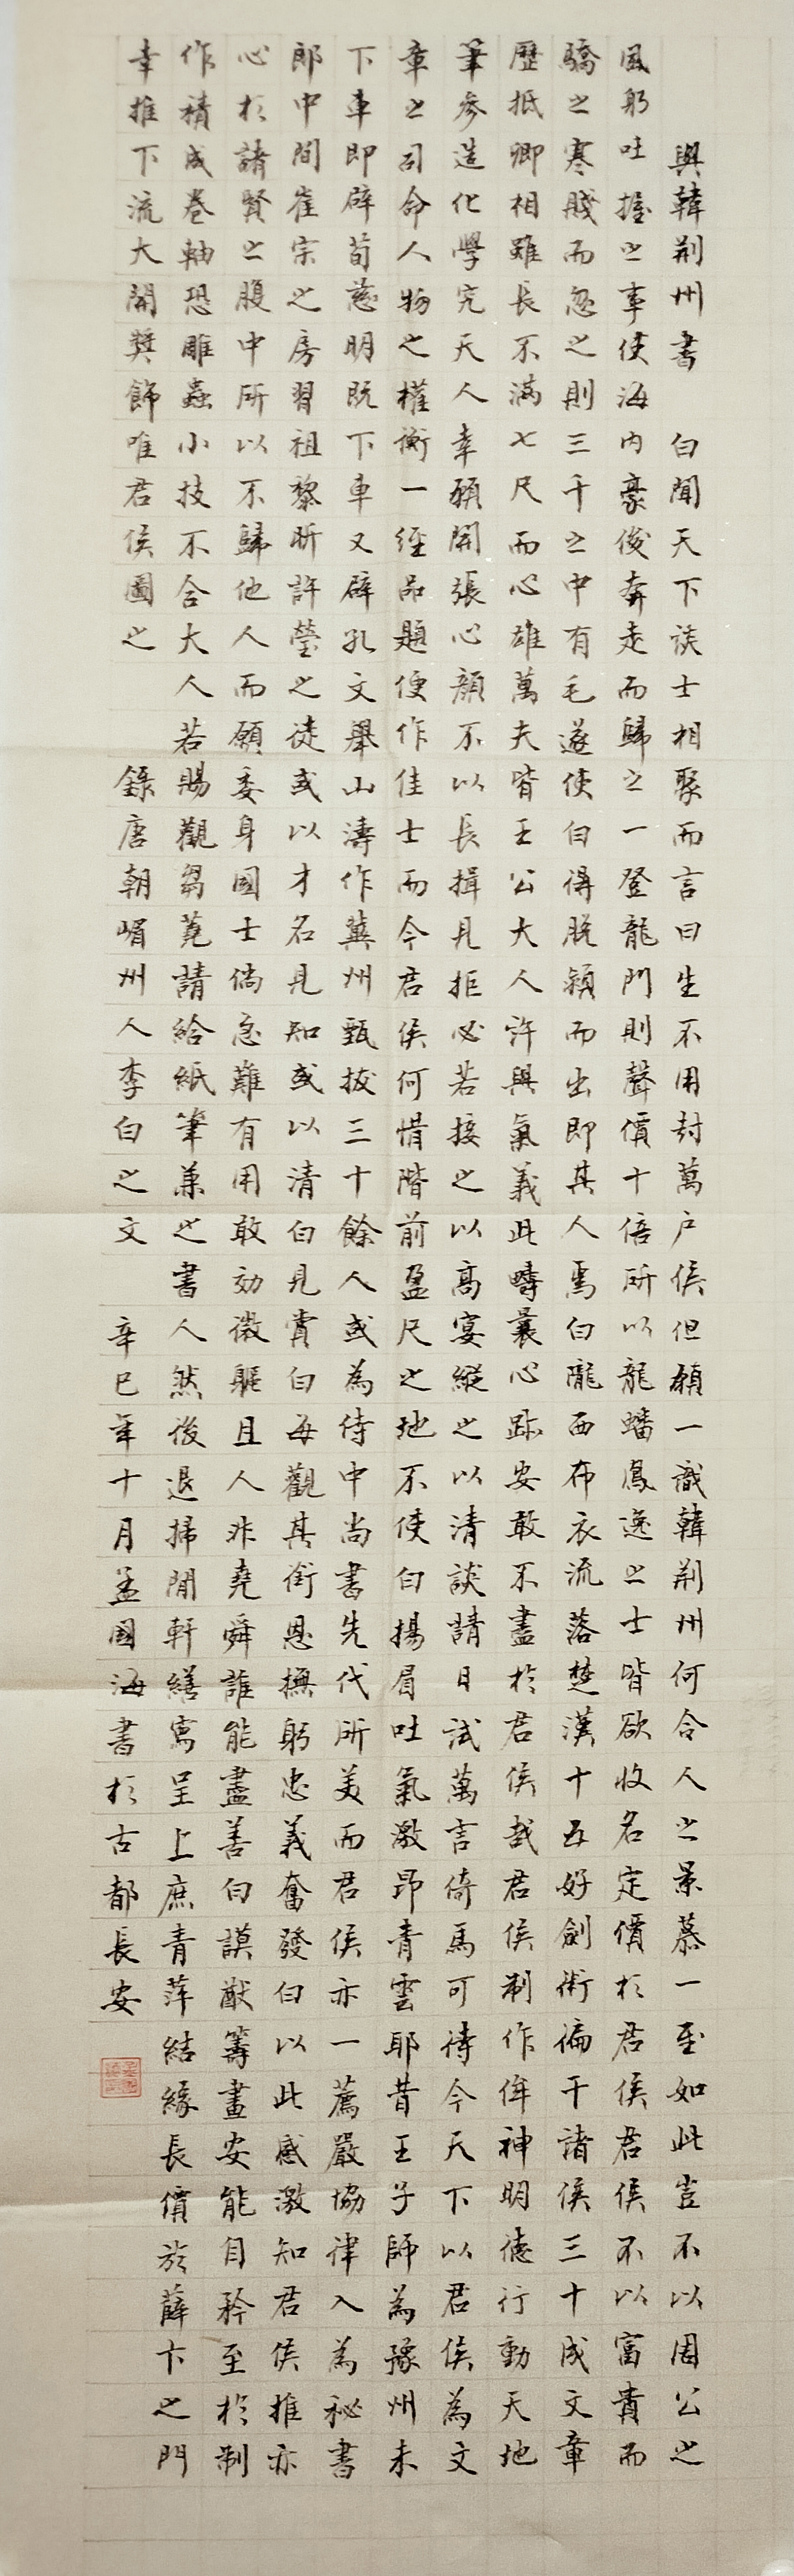 與韓荆州書 白聞天下談士相聚而言曰生不用封萬户侯但願一識韓荆州何令人之景慕一至如此豈不以周公之
風躬吐握之事使海内豪俊奔走而歸之一登龍門則聲價十倍所以龍蟠鳳逸之士皆欲收名定價於君侯君侯不以富貴而
驕之寒賤而忽之則三千之中有毛遂使白得脱穎而出即其人焉白隴西布衣流落楚漢十五好劍術徧干諸侯三十成文章
歷抵卿相雖長不滿七尺而心雄萬夫皆王公大人許與氣義此疇曩心跡安敢不盡於君侯哉君侯制作侔神明德行動天地
筆參造化學究天人幸願開張心顏不以長揖見拒必若接之以高宴縱之以清談請日試萬言倚馬可待今天下以君侯為文
章之司命人物之權衡一經品題便作佳士而今君侯何惜階前盈尺之地不使白揚眉吐氣激昂青雲耶昔王子師為豫州未
下車即辟荀慈明既下車又辟孔文舉山濤作冀州甄拔三十餘人或為侍中尚書先代所美而君侯亦一薦嚴協律入為秘書
郎中間崔宗之房習祖黎昕許瑩之徒或以才名見知或以清白見賞白每觀其銜恩撫躬忠義奮發白以此感激知君侯推赤
心於諸賢之腹中所以不歸他人而願委身國士倘急難有用敢効微軀且人非堯舜誰能盡善白謨猷籌畫安能自矜至於制
作積成卷軸恐雕蟲小技不合大人若賜觀芻蕘請給紙筆兼之書人然後退掃閒軒繕寫呈上庶青萍結緣長價於薛卞之門
幸推下流大開奬飾唯君侯圖之 錄唐朝嵋州人李白之文 辛巳年十月孟國海書於古都長安